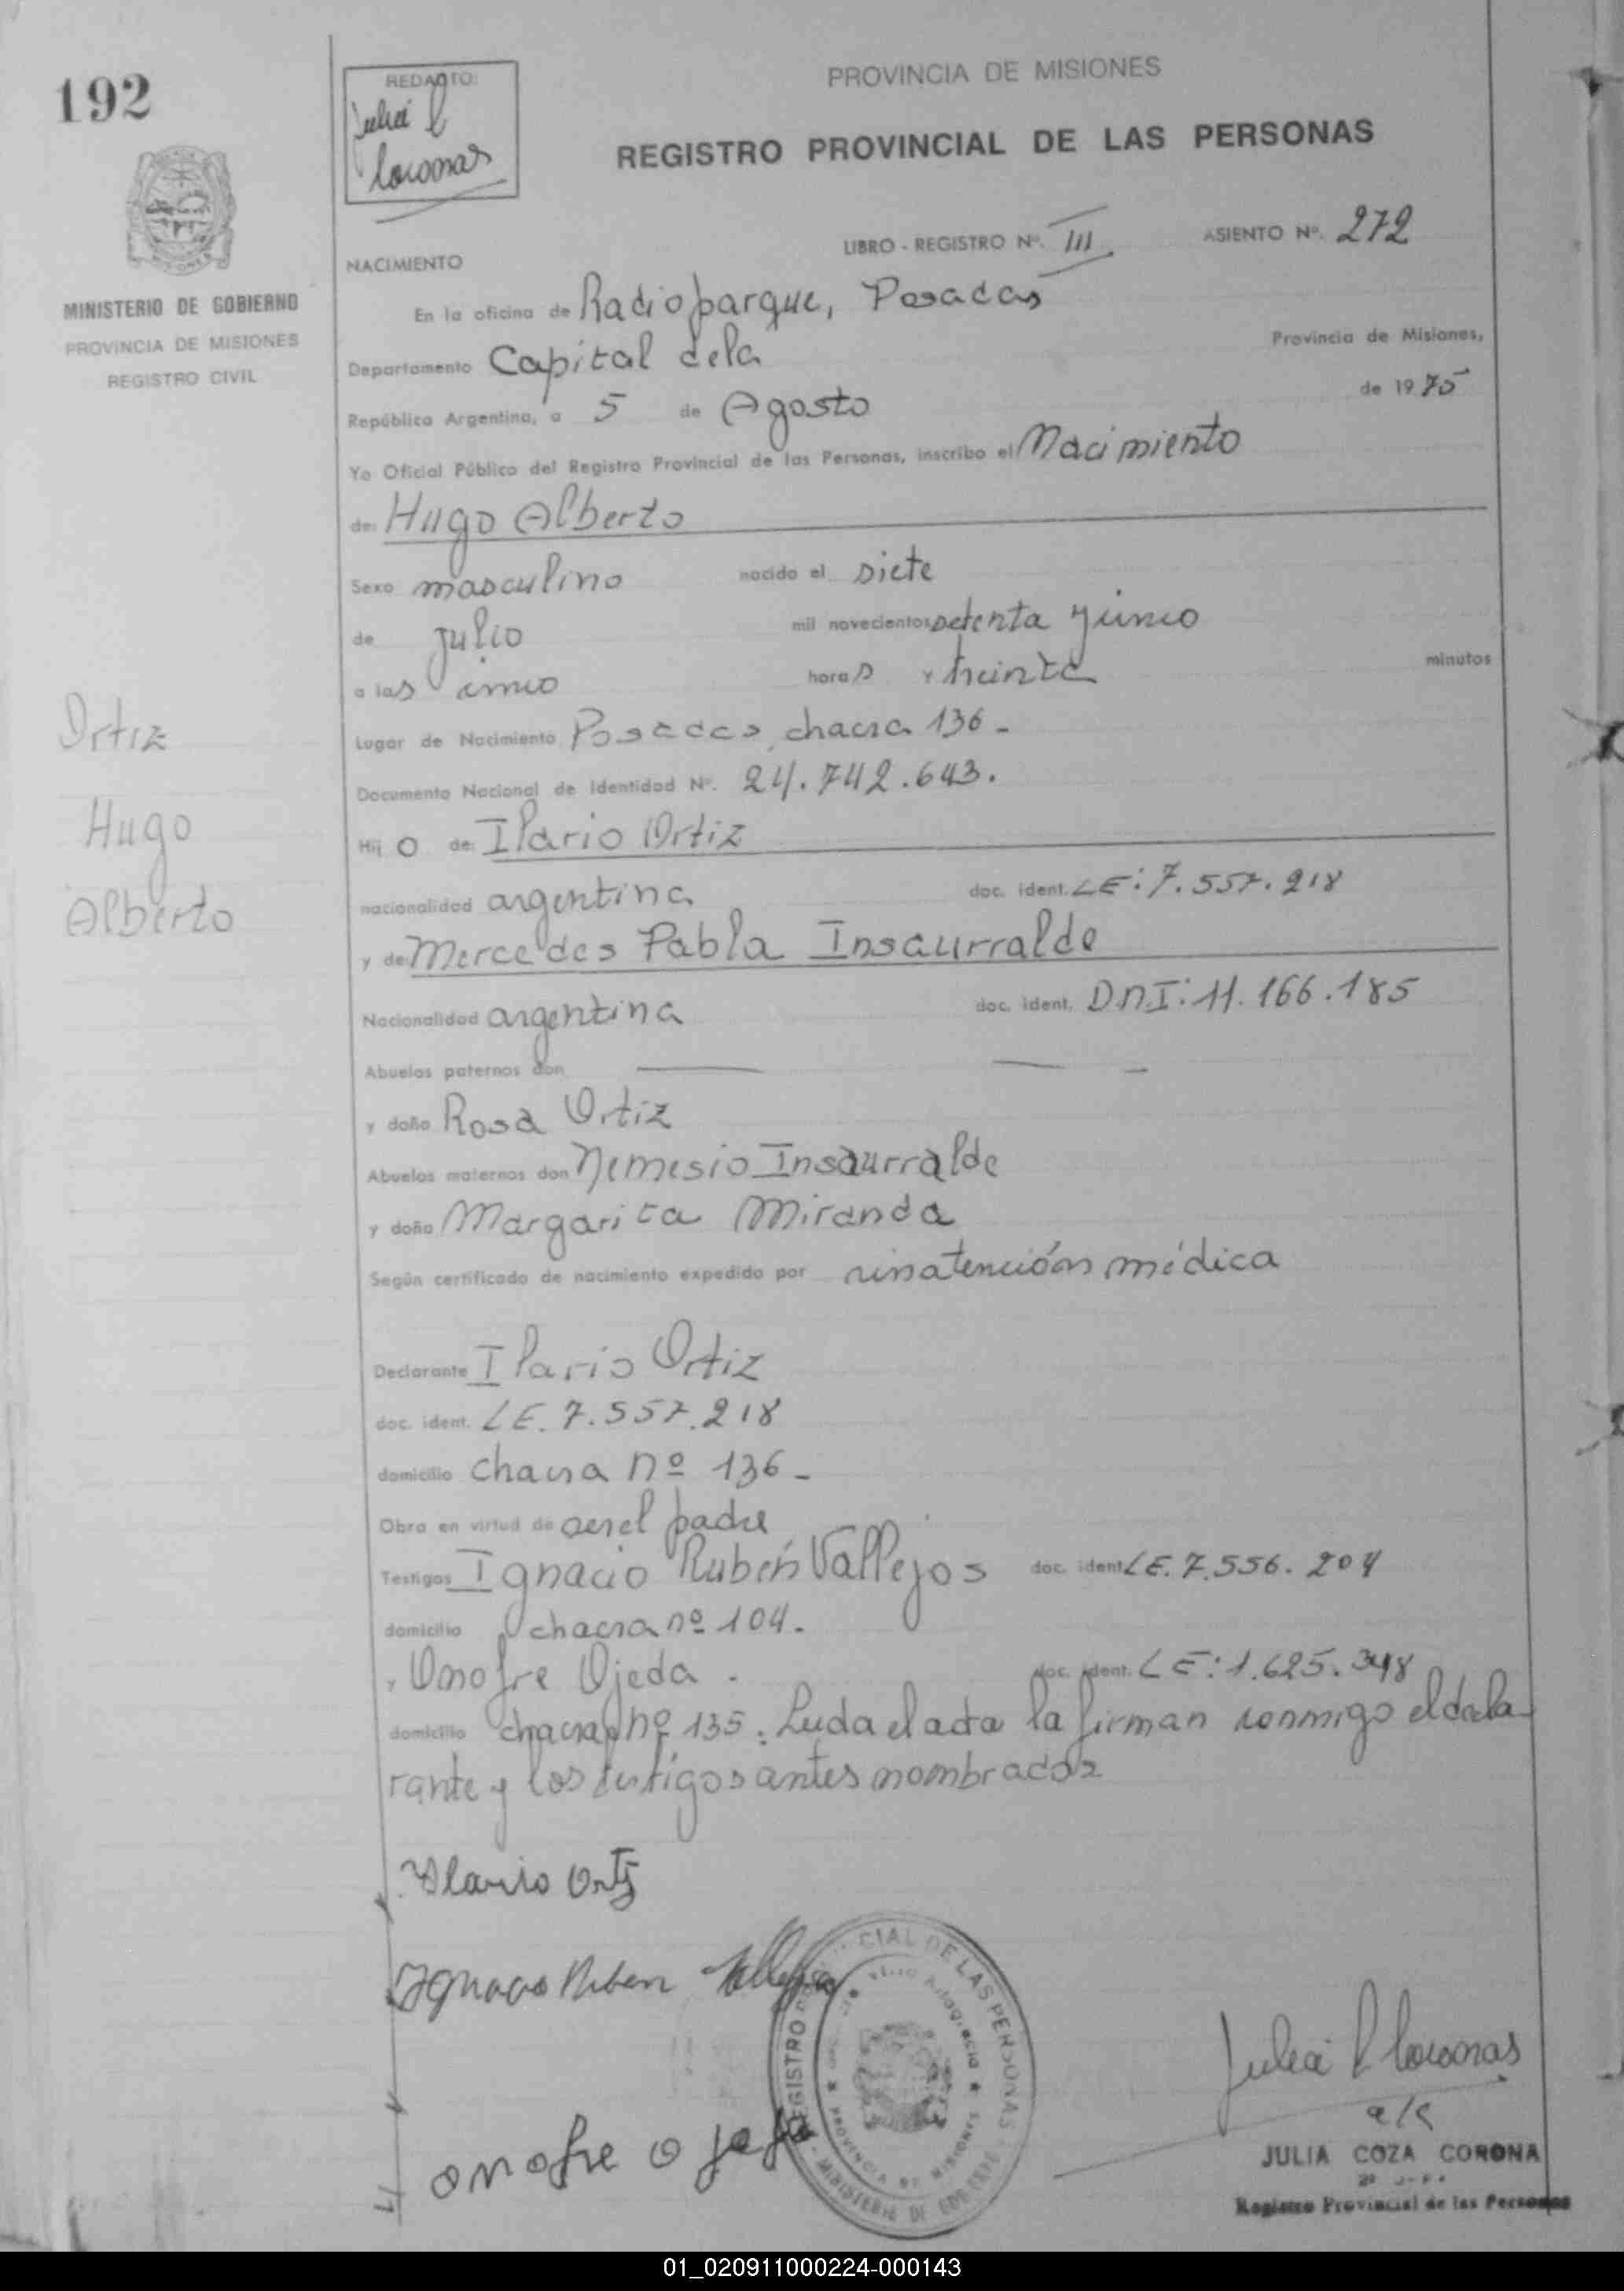 192
REDACTO:
Julia C
Coronas
PROVINCIA DE MISIONES
REGISTRO PROVINCIAL DE LAS PERSONAS
MINISTERIO DE GOBIERNO
PROVINCIA DE MISIONES
REGISTRO CIVIL
LIBRO - REGISTRO Nº. III ASIENTO Nº. 272
NACIMIENTO
En la oficina de Radioparque, Posadas
Departamento Capital dela Provincia de Misiones,
República Argentina, a 5 de Agosto de 1975
Yo Oficial Público del Registro Provincial de las Personas, inscribo el Nacimiento
de: Hugo Alberto
Sexo masculino nacido el siete
de julio mil novecientos setenta y cinco
a las cinco horas y treinta minutos
Lugar de Nacimiento Posadas, chacra 136-
Documento Nacional de Identidad Nº. 24.742.643.
Hijo de: Ilario Ortiz
nacionalidad argentina doc. ident. LE: 7.557.218
y de: Mercedes Pabla Insaurralde
Nacionalidad argentina doc. ident. DNI: 11.166.185
Abuelos paternos don
y doña Rosa Ortiz
Abuelos maternos don Nemesio Insaurralde
y doña Margarita Miranda
Según certificado de nacimiento expedido por sin atención médica
Declarante Ilario Ortiz
doc. ident. LE. 7.557.218
domicilio chacra nº 136-
Obra en virtud de ser el padre
Testigos Ignacio Rubén Vallejos doc. ident. LE. 7.556.204
domicilio chacra nº 104.
y Onofre Ojeda. doc. ident. LE: 1.625.348
domicilio chacra nº 135. Leída el acta la firman conmigo el decla
rante y los testigos antes nombrados
Ortiz
Hugo
Alberto
Ilario Ortiz
Ignacio Ruben Vallejos
onofre ojeda
REGISTRO PROVINCIAL DE LAS PERSONAS
PROVINCIA DE MISIONES
MINISTERIO DE GOBIERNO
Julia C Coronas
a/c
JULIA COZA CORONA
Registro Provincial de las Personas
01_020911000224-000143